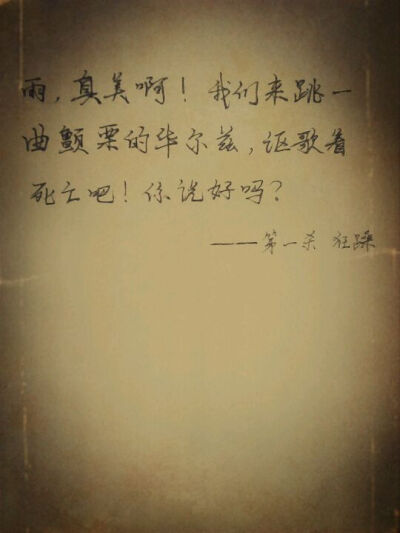 雨，真美啊！我们来跳一
曲颤栗的华尔兹，讴歌着
死亡吧！你说好吗？
——第一杀 狂躁